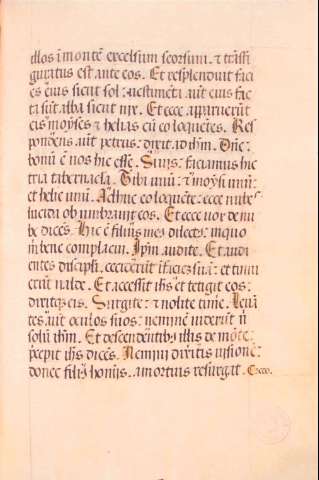 illos ī montē excelsum seorsum. ⁊ trāsfi
guratus est ante eos. Et resplenduit faci
es eius sicut sol: uestimēta aūt eius fac
ta sūt alba sicut nix. Et ecce apparuerūt
eis moyses ⁊ helias cū eo loquētes. Res
pondens aūt petrus: dixit ad ihm. Dnē:
bonū ē nos hic esse. Si uis: faciamus hic
tria tabernacla. Tibi unū: ⁊ moysi unū:
et helie unū. Adhuc eo loquēte: ecce nubes
lucida obumbrauit eos. Et ecce uox de nu
be dicēs. Hic ē filius meus dilects: in quo
m bene complacui. Ipm audite. Et audi
entes discipli. ceciderūt ī faciez suā: et timu
erūt ualde. Et accessit ihs et tetigit eos:
dixitqz eis. Surgite: ⁊ nolite time. Leuā
tes aūt oculos suos: neminē uiderūt n
solū ihm. Et descendentibus illis de mōte:
p̄cepit ihs dicēs. Nemini dixitis uisionē:
donec filius homīs. a mortuis resurgat. Credo.